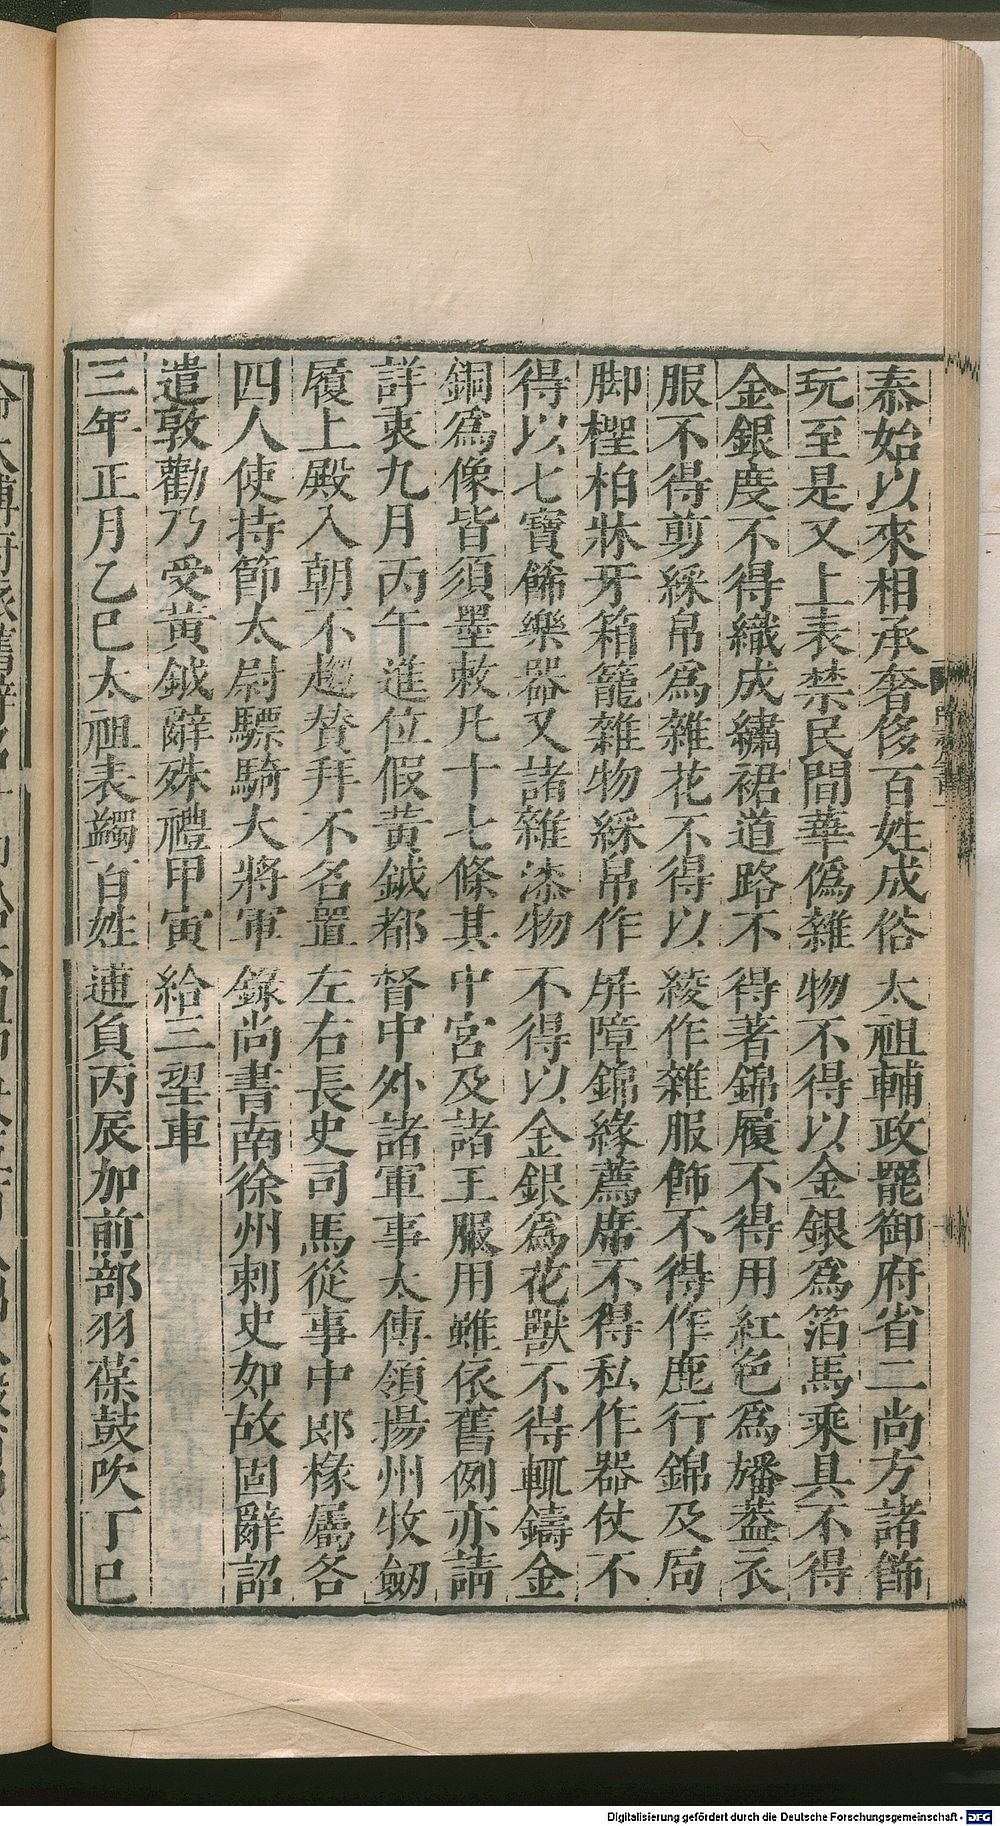 泰始以來相承奢侈百姓成俗太祖輔政罷御府省二尚方諸飾
玩至是又上表禁民間華僞雜物不得以金銀爲箔馬乘具不得
金銀度不得織成繡裙道路不得著錦履不得用紅色爲旛蓋衣
服不得剪綵帛爲雜花不得以綾作雜服飾不得作鹿行錦及局
脚檉柏牀牙箱籠雜物綵帛作屏障錦緣薦席不得私作器仗不
得以七寶飾樂器又諸雜漆物不得以金銀爲花獸不得輒鑄金
銅爲像皆須墨敕凡十七條其中宮及諸王服用雖依舊例亦請
詳衷九月丙午進位假黃鉞都督中外諸軍事太傅領揚州牧劒
履上殿入朝不趨贊拜不名置左右長史司馬從事中郎椽屬各
四人使持節太尉驃騎大將軍錄尚書南徐州刺史如故固辭詔
遣敦勸乃受黃鉞辭殊禮甲寅給三望車
三年正月乙巳太祖表蠲百姓逋負丙辰加前部羽葆鼓吹丁巳
Digitalisierung gefördert durch die Deutsche Forschungsgemeinschaft - DFG